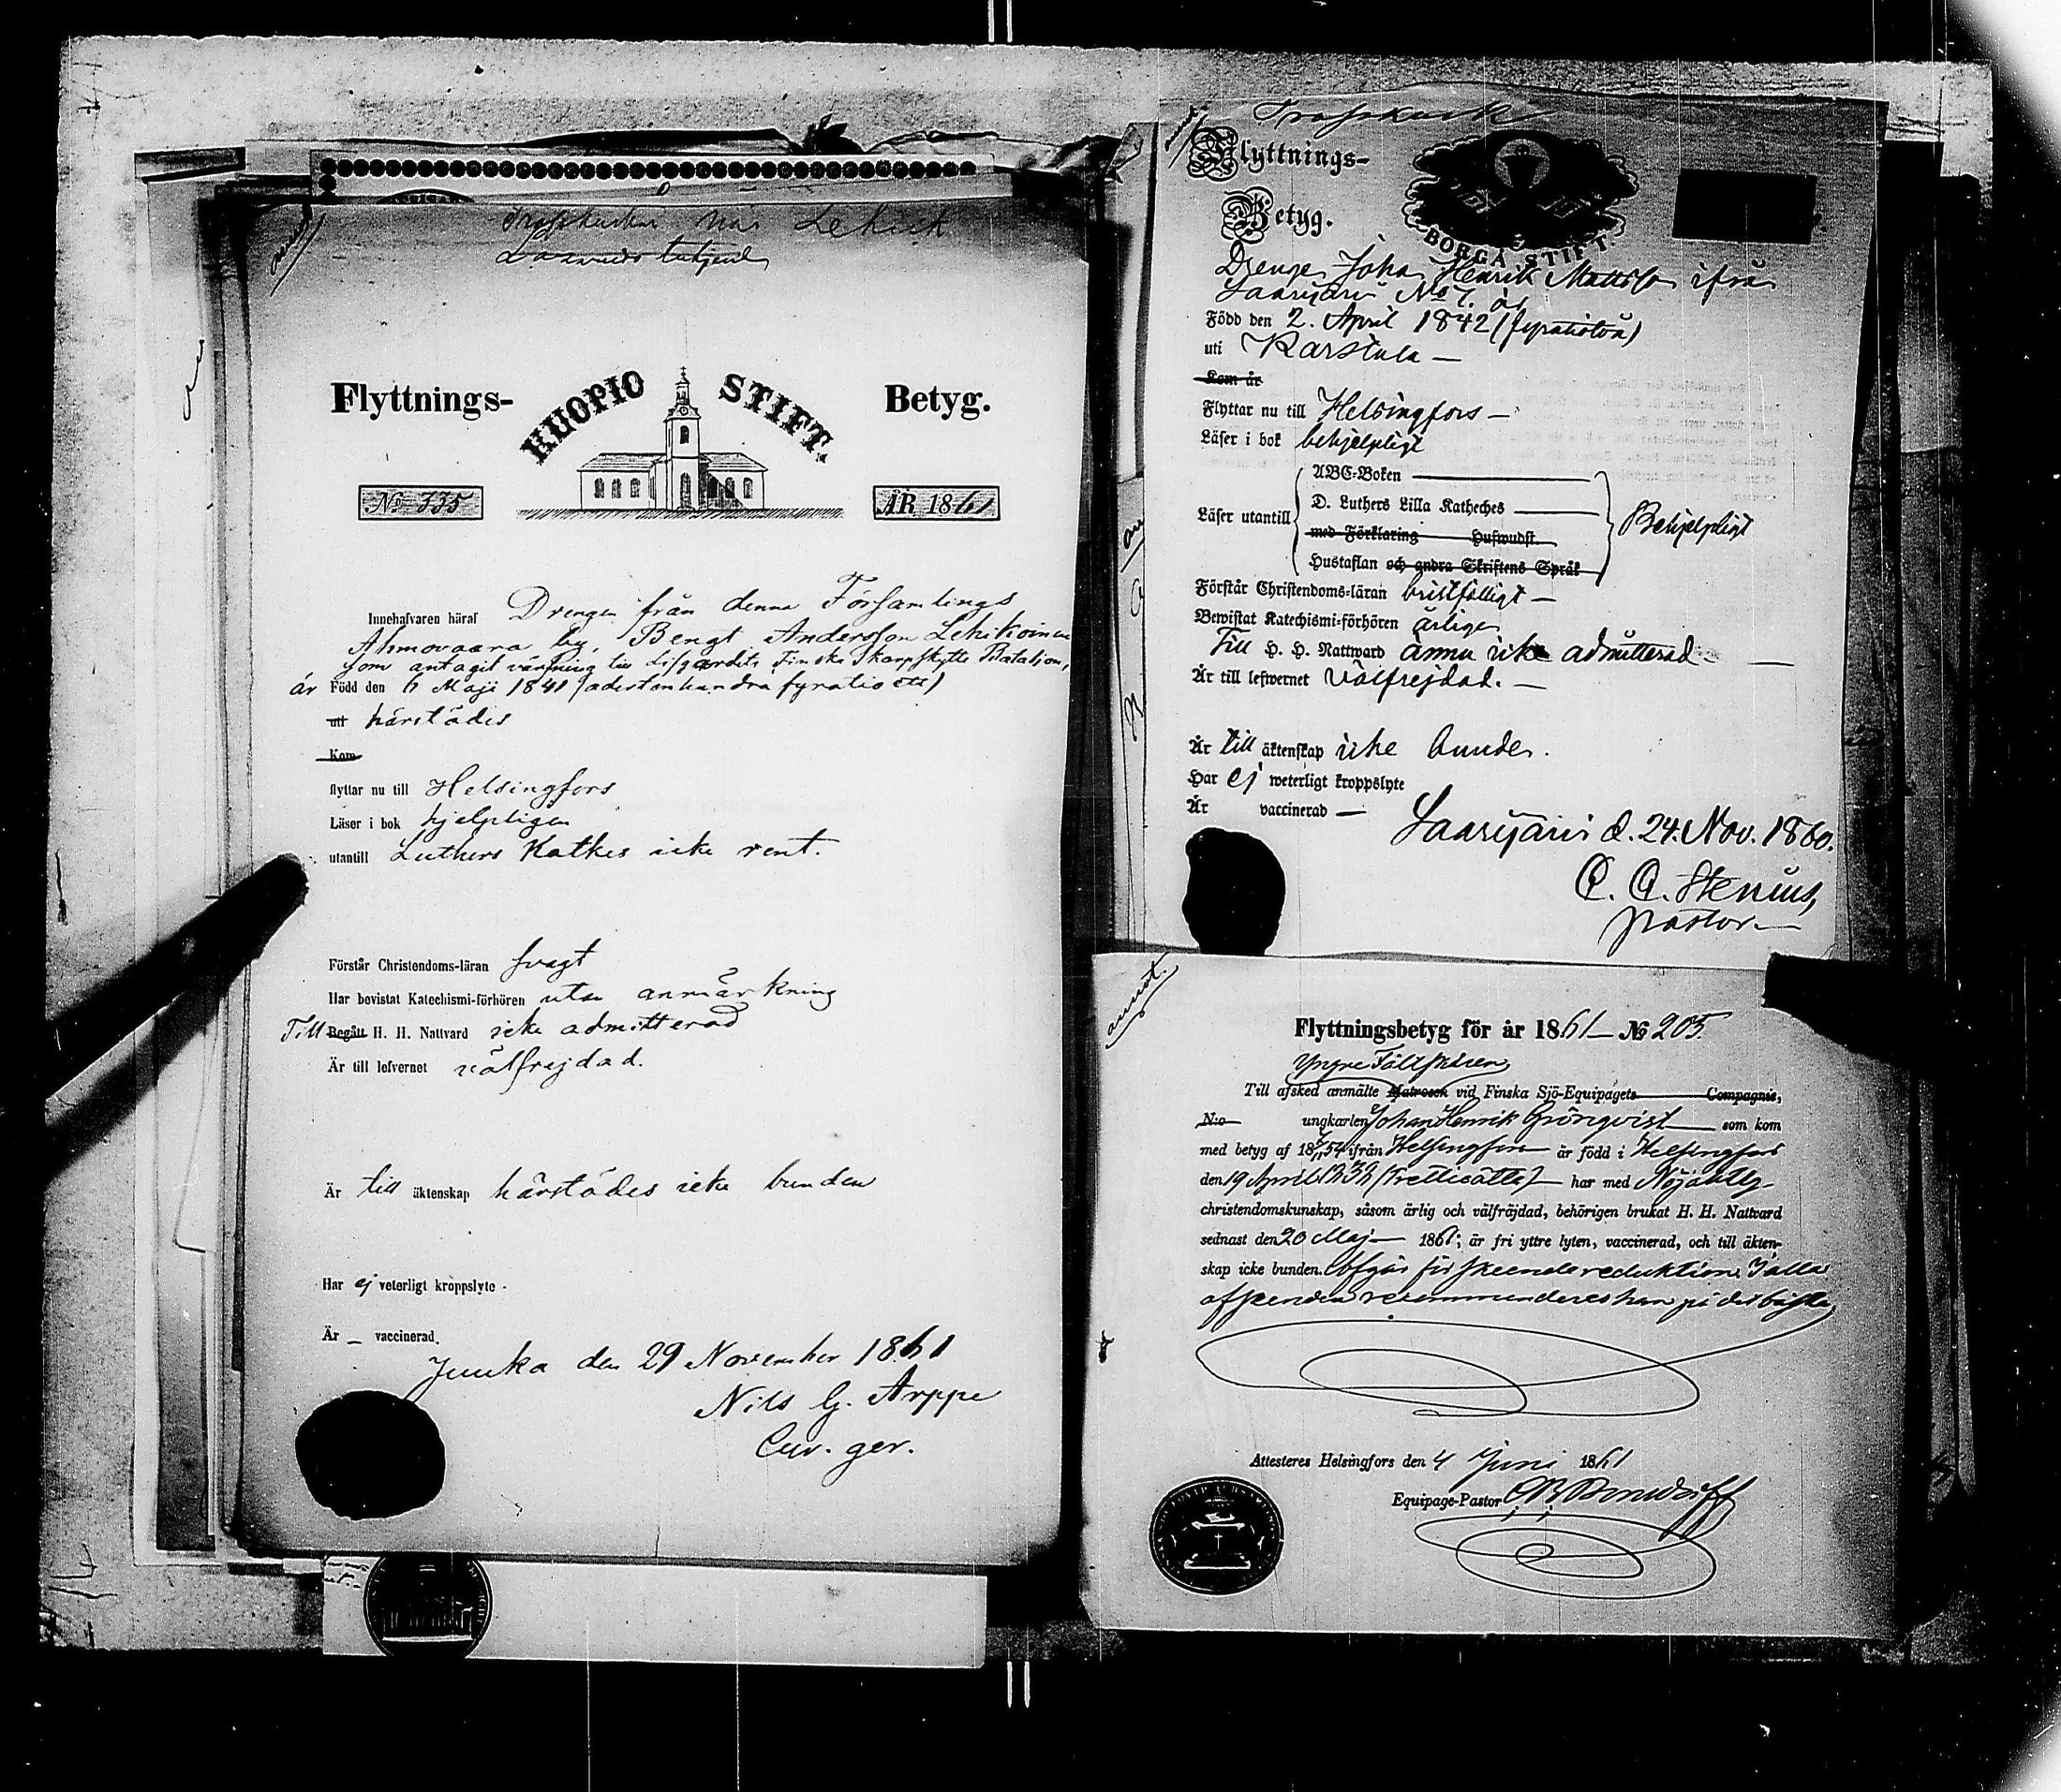 Flyttnings- KUOPIO STIFT. Betyg.
No 335 ÅR 1861
Innehafvaren häraf Drengen från denna Församlings
Ahmovaara by, Bengt Andersson Lehikoinen
som antagit värfning till Lifgardets Finska Skarpskytte Bataljon,
är Född den 6 Maji 1841 (adertonhundra fyratio ett)
uti härstädes
Kom
flyttar nu till Helsingfors
Läser i bok hjelpligen
utantill Luthers Katkes icke rent.
Förstår Christendoms-läran svagt
Har bevistat Katechismi-förhören utan anmärkning
Till Begått H. H. Nattvard icke admitterad
Är till lefvernet välfrejdad.
Är till äktenskap härstädes icke bunden
Har ej veterligt kroppslyte -
Är _ vaccinerad.
Juuka den 29 November 1861
Nils G. Arppe
Cur. ger.
Trosskusk
Flyttnings-
Betyg.
BORGÅ STIFT.
Drengen Johan Henrik Mattsson ifrån
Saarijärvi No 7. är
Född den 2. April 1842 (fyratiotvå)
uti Karstula —
Kom år
Flyttar nu till Helsingfors —
Läser i bok behjelpligt
ABC-Boken
Läser utantill D. Luthers Lilla Katheches Behjelpligt
med Förklaring Hufwudst.
Hustaflan och andra Skriftens Språk
Förstår Christendoms-läran bristfälligt —
Bewistat Katechismi-förhören årligen
Till H. H. Nattward ännu icke admitterad —
Är till lefwernet välfrejdad. —
Är till äktenskap icke bunden.
Har ej weterligt kroppslyte
Är vaccinerad —
Saarijärvi d. 24. Nov. 1860.
C. A. Stenius,
pastor
annot.
Flyttningsbetyg för år 1861 — No 205.
Yngre Fältskären
Till afsked anmälte Matrosen vid Finska Sjö-Equipagets Compagnie,
N:o ungkarlen Johan Henrik Grönqvist som kom
med betyg af 18 54 ifrån Helsingfors är född i Helsingfors
den 19 April 1838 (Trettioåtta) har med Nöjaktig
christendomskunskap, såsom ärlig och välfräjdad, behörigen brukat H. H. Nattvard
sednast den 20 Maj 1861; är fri yttre lyten, vaccinerad, och till äkten-
skap icke bunden. Afgår för skeende reduktion. I alla
afseenden recommenderes han på det bästa,
Attesteres Helsingfors den 4 Juni 1861
Equipage-Pastor Bonsdorff